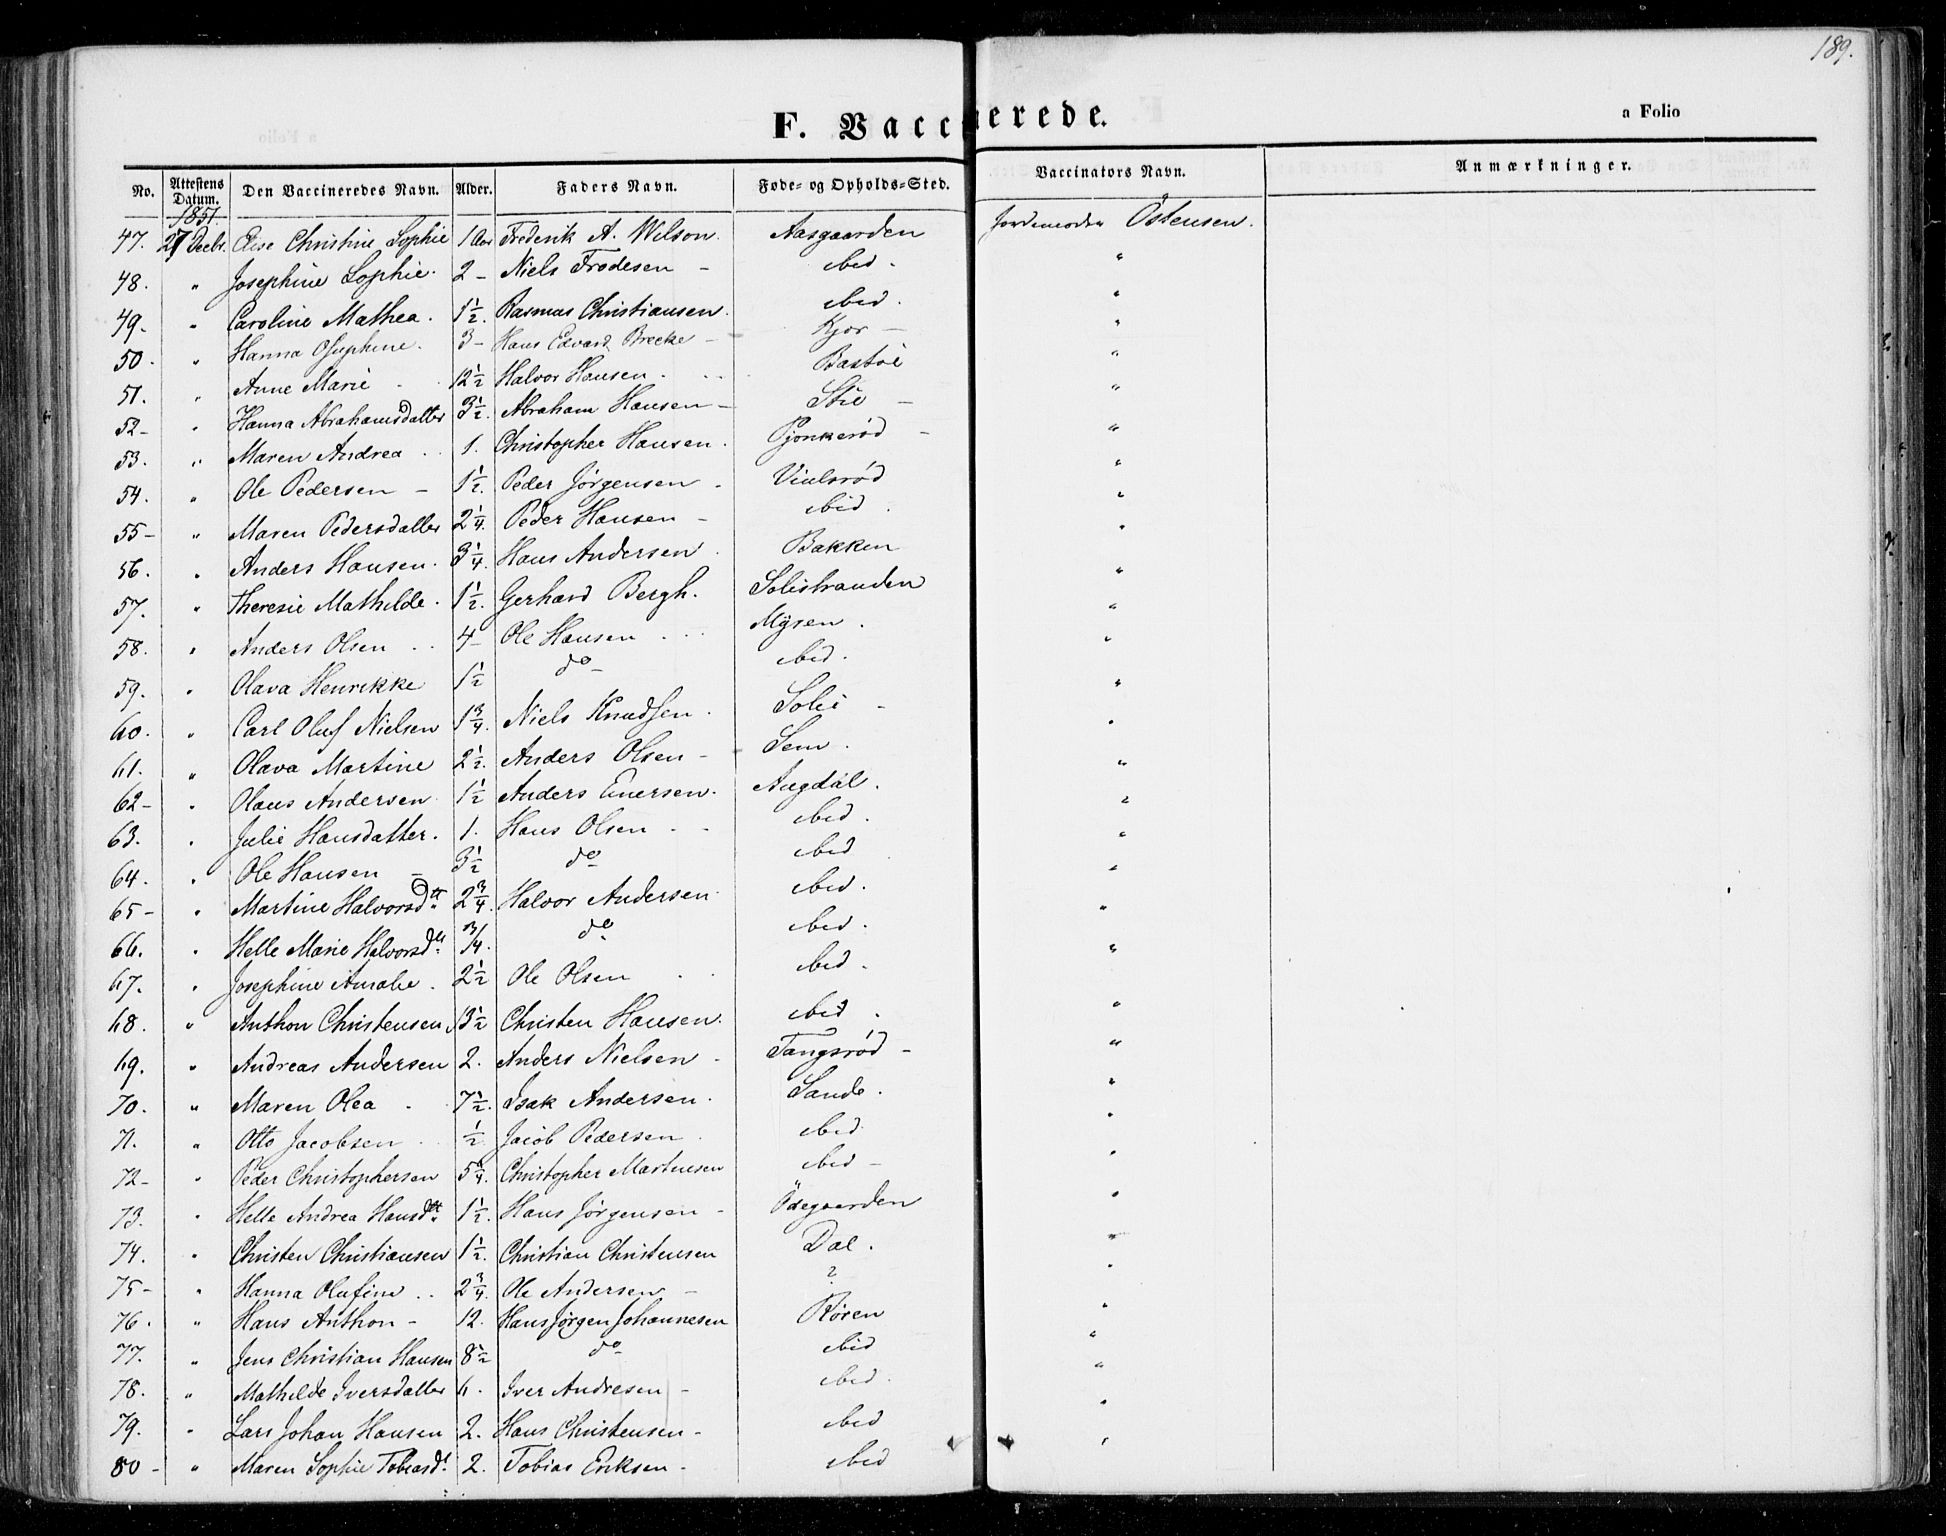 189.
F. Vaccinerede.
a Folio
No. Attestens Datum. Den Vaccineredes Navn. Alder. Faders Navn. Føde- og Opholds-Sted. Vaccinators Navn. Anmærkninger.
1851
47. 27 Decbr. Elise Christine Sophie 1 Aar Frederik A. Wilson. Aasgaarden Jordemoder Östensen.
48. " Josephine Sophie. 2 - Niels Frodesen - ibid. "
49. " Caroline Mathea. 1 1/2. Rasmus Christiansen. ibid. "
50. " Hanna 3 - Hans Edvard Brecke - Kjør - "
51. " Anne Marie 12 1/2 Halvor Hansen. Bastöe "
52 - " Hanna Abrahamsdatter 3 1/2. Abraham Hansen - Stie - "
53. " Maren Andrea 1. Christopher Hansen. Pjonkerød - "
54. " Ole Pedersen - 1 1/2. Peder Jörgensen - "
55 - " Maren Pedersdatter 2 1/4. Peder Hansen - ibid. "
56. " Anders Hansen. 3 1/4. Hans Andersen. Bakken "
57. " Theresie Mathilde. 1 1/2. Gerhard Bergh. Solistranden "
58. " Anders Olsen 4 - Ole Hansen Mÿsen. "
59. " Olava Henrikke 1 1/2 do - ibid. "
60. " Carl Oluf Nielsen 1 3/4. Niels Knudsen. Solie - "
61. " Olava Martine 2 1/2. Anders Olsen - Sem. "
62 - " Olaus Andersen 1 1/2 Anders Enersen. Augdal. "
63. " Julie Hansdatter. 1. Hans Olsen ibid. "
64. " Ole Hansen - 3 1/2 do ibid "
65 - " Martine Halvorsdtt. 2 3/4. Halvor Andersen ibid. "
66. " Helle Marie Halvorsdtt. 3/4. do ibid. "
67. " Josephine Amalie. 2 1/2 Ole Olsen ibid. "
68. " Anthon Christensen 13 1/2 Christen Hansen. ibid. "
69. " Andreas Andersen 2. Anders Nielsen - Tangsrød - "
70. " Maren Olea 7 1/2. Isak Andersen. Sande. "
71. " Otto Jacobsen 1/2. Jacob Pedersen ibid. "
72 - " Peder Christophersen Christopher Martinsen ibid - "
73. " Helle Andrea Hansdtt. 1 1/2. Hans Jørgensen - Ödegaarden "
74. " Christen Christiansen 1 1/2. Christian Christensen Dal. "
75 - " Hanna Olufine 2 3/4. Ole Andersen - ? "
76. " Hans Anthon - 12. Hans Jørgen Johannesen Røren "
77. " Jens Christian Hansen 8 1/2 do ibid "
78. " Mathilde Iversdatter 6. Iver Andresen - ibid. "
79. " Lars Johan Hansen 2. Hans Christensen - ibid "
80 - " Maren Sophie Tobiasd. 2. Tobias Eriksen - ibid "